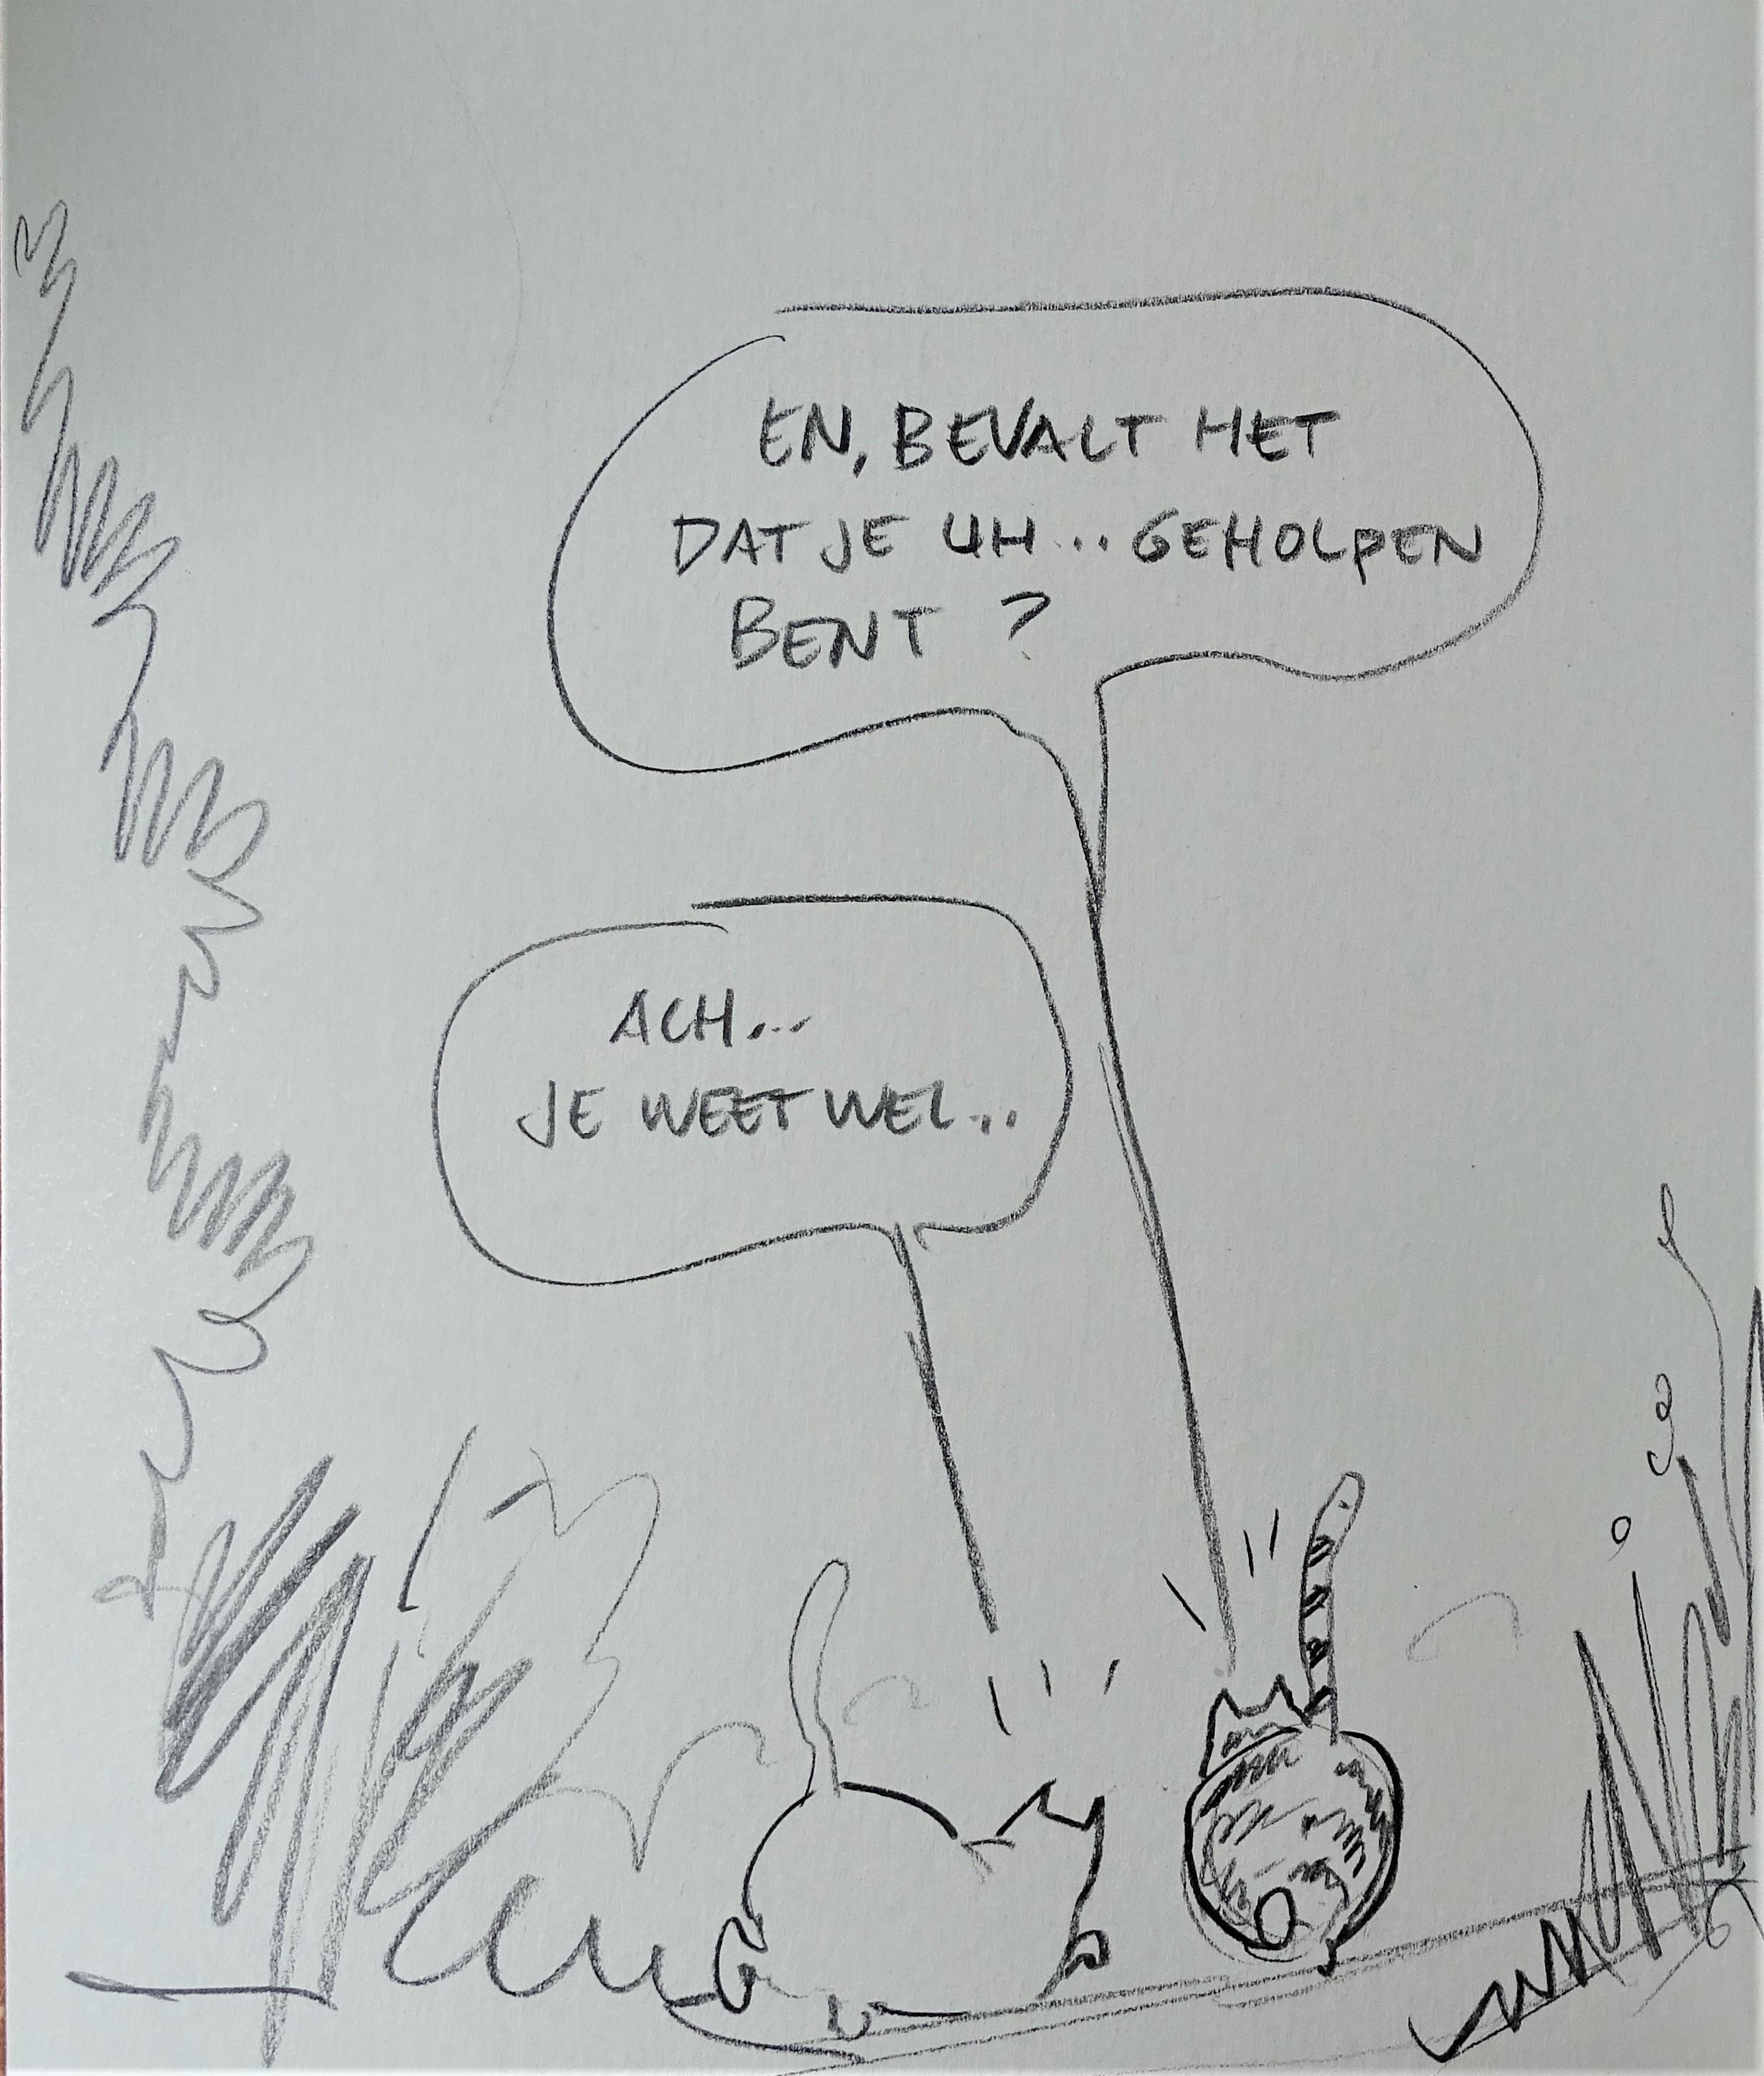 EN, BEVALT HET
DAT JE UH... GEHOLPEN
BENT ?
ACH...
JE WEET WEL...